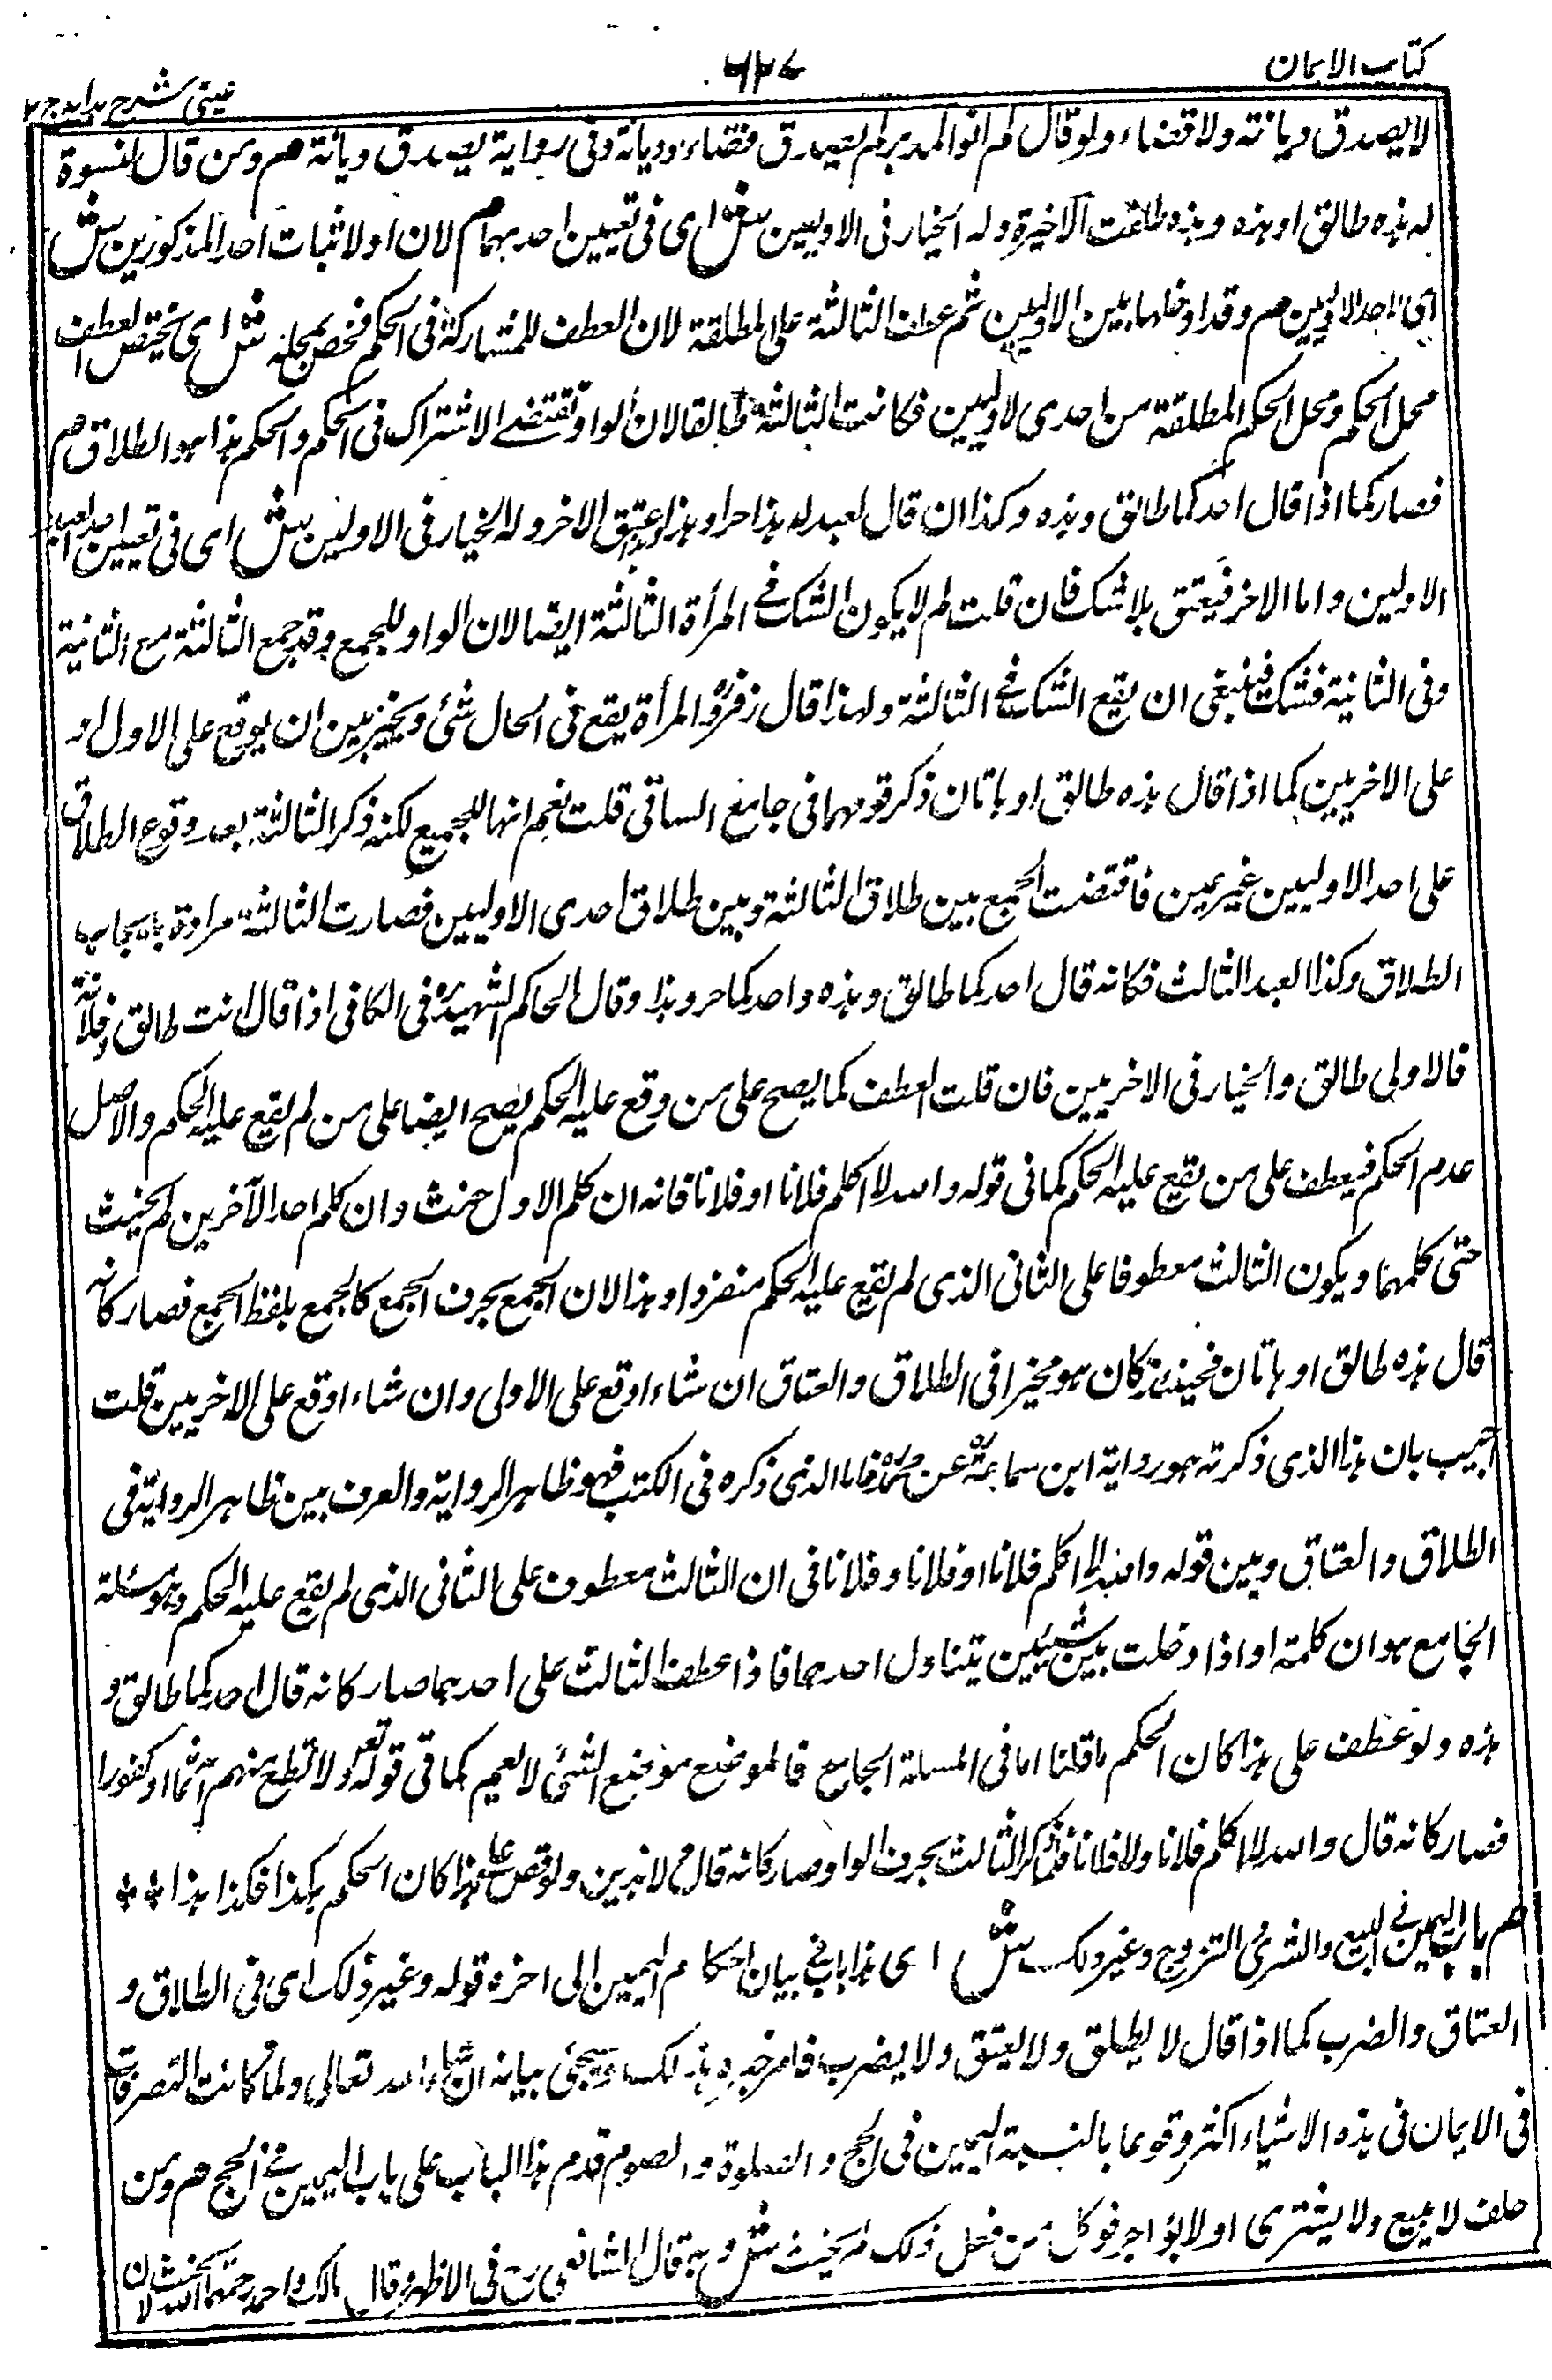 كتاب الايمان
٦٢٧
عيني شرح هدايه ج ٢
لا يصدق ديانة ولا قضاء ولو قال لم انو المدبر لم يصدق قضاء وديانة وفى رواية يصدق ديانة هم ومن قال لنسوة
له هذه طالق او هذه وهذه طلقت الاخيرة وله الخيار فى الاوليين ش اى فى تعيين احدهما م لان او لاثبات احد المذكورين ش
اى احد الاوليين هم وقد ادخلها بين الاوليين ثم عطف الثالثة على المطلقة لان العطف للمشاركة فى الحكم فيختص بمحله ش اى يختص العطف
محل الحكم ومحل الحكم المطلقة من احدى الاوليين فكانت الثالثة طالقا لان الواو تقتضى الاشتراك فى الحكم والحكم هذا هو الطلاق هم
فصار كما اذا قال احدكما طالق وهذه وكذا ان قال لعبيده هذا حر او هذا وهذا عتق الاخر وله الخيار فى الاولين ش اى فى تعيين احد العبدين
الاولين واما الاخر فيعتق بلا شك فان قلت لم لا يكون الشك فى المرأة الثالثة ايضا لان الواو للجمع وقد جمع الثالثة مع الثانية
وفى الثانية فشك فينبغى ان يقع الشك فى الثالثة ولهذا قال زفر والمرأة يقع فى الحال شئ ويخير بين ان يوقع على الاول او
على الاخريين كما اذا قال هذه طالق او هاتان ذكر قولهما فى جامع الساقى قلت نعم انها للجميع لكنه ذكر الثالثة بعد وقوع الطلاق
على احد الاوليين غير عين فاقتضت الجمع بين طلاق الثالثة وبين طلاق احدى الاوليين فصارت الثالثة مرادة بايجاب
الطلاق وكذا العبد الثالث فكانه قال احدكما طالق وهذه واحدكما حر وهذا وقال الحاكم الشهيد فى الكافى اذا قال انت طالق وفلانة
فالاولى طالق والخيار فى الاخريين فان قلت العطف كما يصح على من وقع عليه الحكم يصح ايضا على من لم يقع عليه الحكم والاصل
عدم الحكم فيعطف على من يقع عليه الحكم كما فى قوله والله لا اكلم فلانا او فلانا فانه ان كلم الاول حنث وان كلم احد الآخرين لم يحنث
حتى كلمهما ويكون الثالث معطوفا على الثانى الذى لم يقع عليه الحكم منفردا وهذا لان الجمع بحرف الجمع كالجمع بلفظ الجمع فصار كانه
قال هذه طالق او هاتان فحينئذ كان هو مخيرا فى الطلاق والعتاق ان شاء اوقع على الاولى وان شاء اوقع على الاخريين قلت
اجيب بان هذا الذى ذكرته هو رواية ابن سماعة عن محمد فاما الذى ذكره فى الكتب فهو ظاهر الرواية والعرف بين ظاهر الرواية فى
الطلاق والعتاق وبين قوله والله لا اكلم فلانا او فلانا وفلانا فى ان الثالث معطوف على الثانى الذى لم يقع عليه الحكم وهو مسئلة
الجامع هو ان كلمة او اذا دخلت بين شيئين يتناول احدهما فاذا عطف الثالث على احدهما صار كانه قال احدكما طالق و
هذه ولو عطف على هذا كان الحكم ما قلنا اما فى المسئلة الجامع فالموضع موضع الشئ لا يعم كما فى قوله تعالى ولا تطع منهم آثما او كفورا
فصار كانه قال والله لا اكلم فلانا ولا فلانا فلما ذكر الثالث بحرف الواو صار كانه قال لا هذين ولو قص على هذا كان الحكم هكذا فكذا هذا
هم باب اليمين فى البيع والشرى والتزوج وغير ذلك ش اى هذا باب فى بيان احكام اليمين الى اخره قوله وغير ذلك اى فى الطلاق و
العتاق والضرب كما اذا قال لا يطلق ولا يعتق ولا يضرب فامر غيره بذلك ويجئ بيانه ان شاء الله تعالى ولما كانت التصرفات
فى الايمان فى هذه الاشياء اكثر وقوعا بالنسبة اليمين فى الحج والصلوة والصوم قدم هذا الباب على باب اليمين فى الحج هم ومن
حلف لا يبيع ولا يشترى او لا يؤاجر فوكل من فعل ذلك لم يحنث ش وبه قال الشافعى فى الاظهر وقال مالك واحمد رحمهما الله يحنث لان